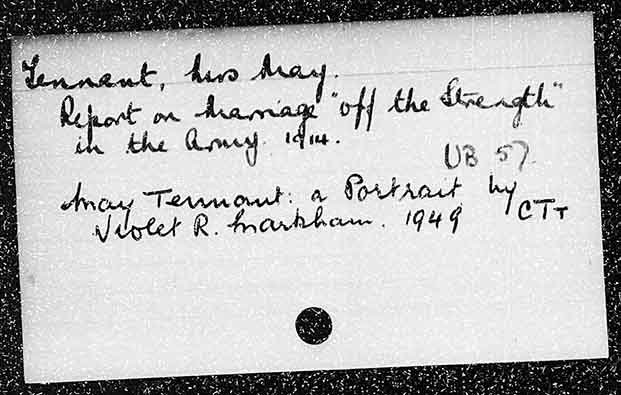 Tennant, Mrs May.
Report on Marriage "off the Strength"
in the Army. 1914.
UB 57
May Tennant: a Portrait by
Violet R. Markham. 1949
CTT